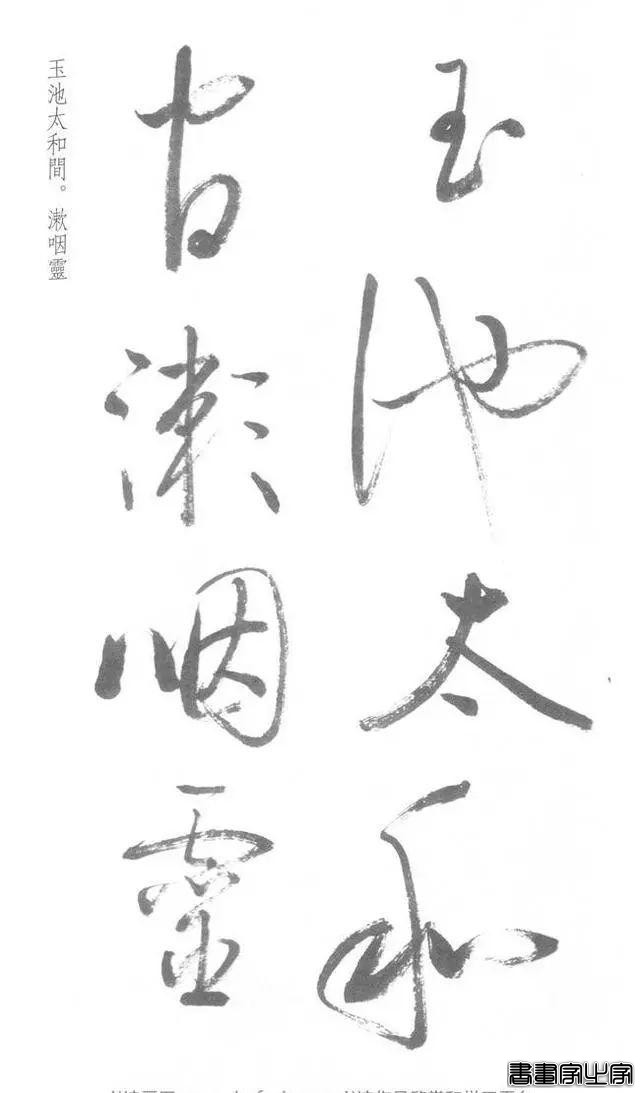 玉池太和
間漱咽靈
玉池太和間。漱咽靈
書畫字业字